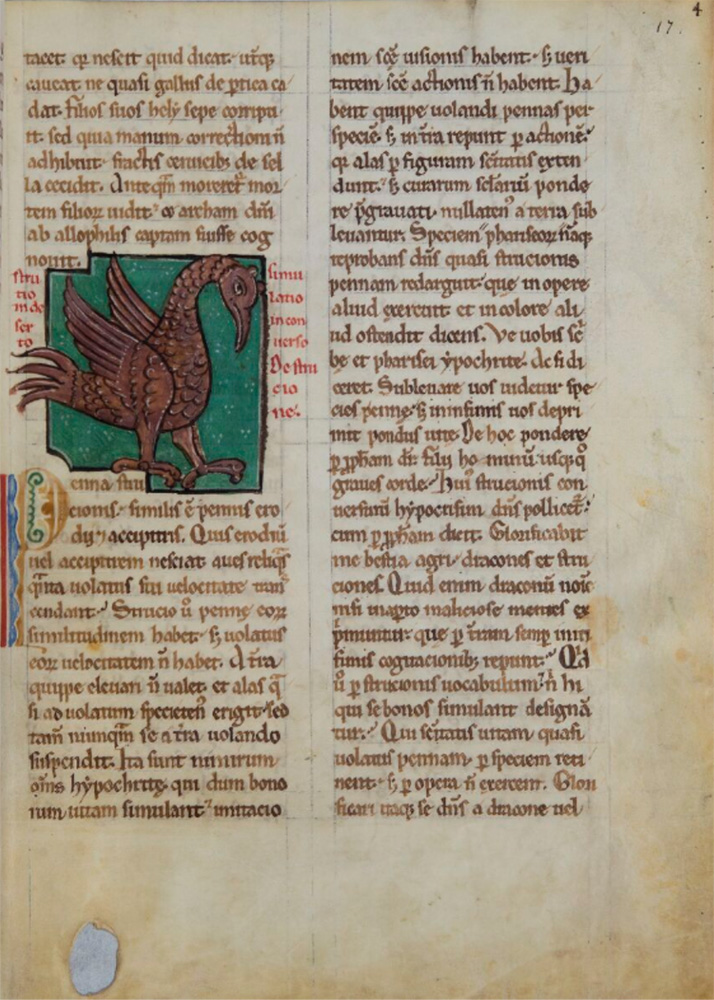 4
17.
tacet. qr nescit quid dicat. utrq;
caueat ne quasi gallus de ptica ca
dat. filios suos hely sepe corripu
it. sed quia manum correctiom n̄
adhibuit. fractis ceruicib; de sel
la cecidit. Anteq̄m moreret̄ mor
tem filioꝝ uidit. ⁊ archam dn̄i
ab allophilis captam fuisse cog
nouit.
stru
tio
in de
ser
to
simu
latio
in con
uerso
De stru
cio
ne.
Penna stru
cionis. similis ē pennis ero
dii ⁊ accipitris. Quis erodiū
uel accipitrem nesciat aues reliq̄s
q̄nta uolatus sui uelocitate tran̄
cendant. Strucio ū penne eoꝝ
similitudinem habet. s; uolatus
eoꝝ uelocitatem n̄ habet. A t̄ra
quippe eleuari n̄ ualet. et alas q̄
si ad uolatum specieten̄ erigit. sed
tam̄ nunq̄m se a t̄ra uolando
suspendit. Ita sunt nimirum
om̄s hypocrite. qui dum bono
rum uitam simulant. imitacio
nem sc̄e uisionis habent. s; ueri
tatem sc̄e actionis n̄ habent. Ha
bent quippe uolandi pennas per
speciē. s; in t̄ra repunt p actionē.
qr alas p figuram sc̄itatis exten
dunt. s; curarum sc̄lariū ponde
re p̄grauati. nullaten⁹ a terra sub
leuantur. Speciem phariseoꝝ nāq;
reprobans dn̄s quasi strucionis
pennam redarguit. que in opere
aliud exercuit et in colore ali
ud ostendit dicens. Ve uobis sc̄
be et pharisei ypochrite. Ac si di
ceret. Subleuare uos uidetur spe
cies penne. s; in infimis uos depri
mit pondus uite. De hoc pondere
p p̄pham dr̄. filii ho minū usq; q̄
graues corde. Hui⁹ strucionis con
uersurū hypocrisim dn̄s pollicet̄.
cum p p̄pham dicit. Glorificabit
me bestia agri. dracones et stru
ciones. Quid enim draconū noīe
nisi in apto maliciose mentes ex
p̄muntur. que p t̄ram semp in in
fimis cogitacionib; repunt. Q̄d
ū p strucionis uocabulum. n̄ hi
qui se bonos simulant designā
tur. Qui sc̄itatis uitam quasi
uolatus pennam. p speciem reti
nent. s; p opera n̄ exercent. Glori
ficari itaq; se dn̄s a dracone uel